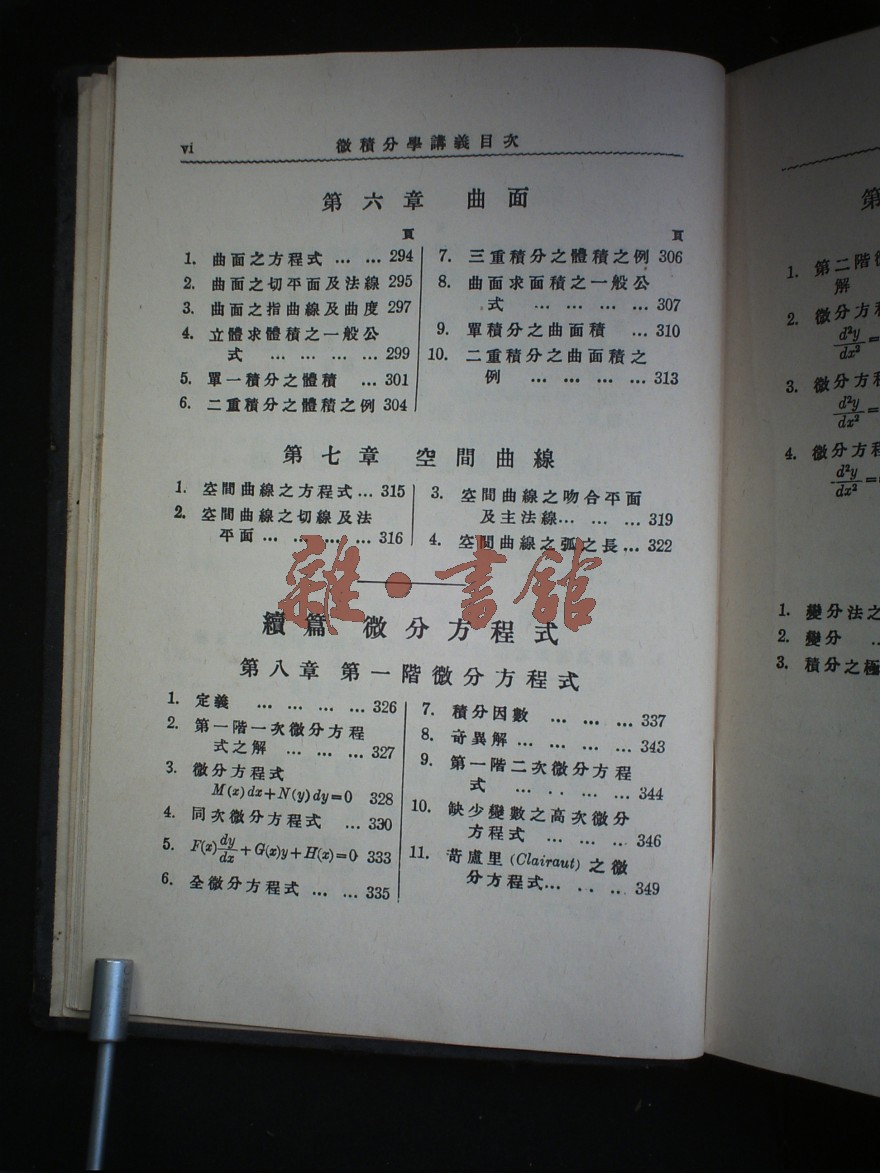 vi 微積分學講義目次
第六章 曲面
頁
1. 曲面之方程式 … … 294
2. 曲面之切平面及法線 295
3. 曲面之指曲線及曲度 297
4. 立體求體積之一般公
式 … … … … 299
5. 單一積分之體積 … 301
6. 二重積分之體積之例 304
頁
7. 三重積分之體積之例 306
8. 曲面求面積之一般公
式 … … … … 307
9. 單積分之曲面積 … 310
10. 二重積分之曲面積之
例 … … … … 313
第七章 空間曲線
1. 空間曲線之方程式 … 315
2. 空間曲線之切線及法
平面 … … … … 316
3. 空間曲線之吻合平面
及主法線 … … … 319
4. 空間曲線之弧之長 … 322
雜·書館
續篇 微分方程式
第八章 第一階微分方程式
1. 定義 … … … … 326
2. 第一階一次微分方程
式之解 … … … 327
3. 微分方程式
M(x)dx+N(y)dy=0 328
4. 同次微分方程式 … 330
5. F(x)dy/dx+G(x)y+H(x)=0 333
6. 全微分方程式 … … 335
7. 積分因數 … … … 337
8. 奇異解 … … … … 343
9. 第一階二次微分方程
式 … … … … 344
10. 缺少變數之高次微分
方程式 … … … 346
11. 苛盧里 (Clairaut) 之微
分方程式 … … … 349
第
1. 第二階微
解
2. 微分方程
d²y/dx²=
3. 微分方程
d²y/dx²=
4. 微分方程
d²y/dx²=
1. 變分法之
2. 變分 …
3. 積分之極